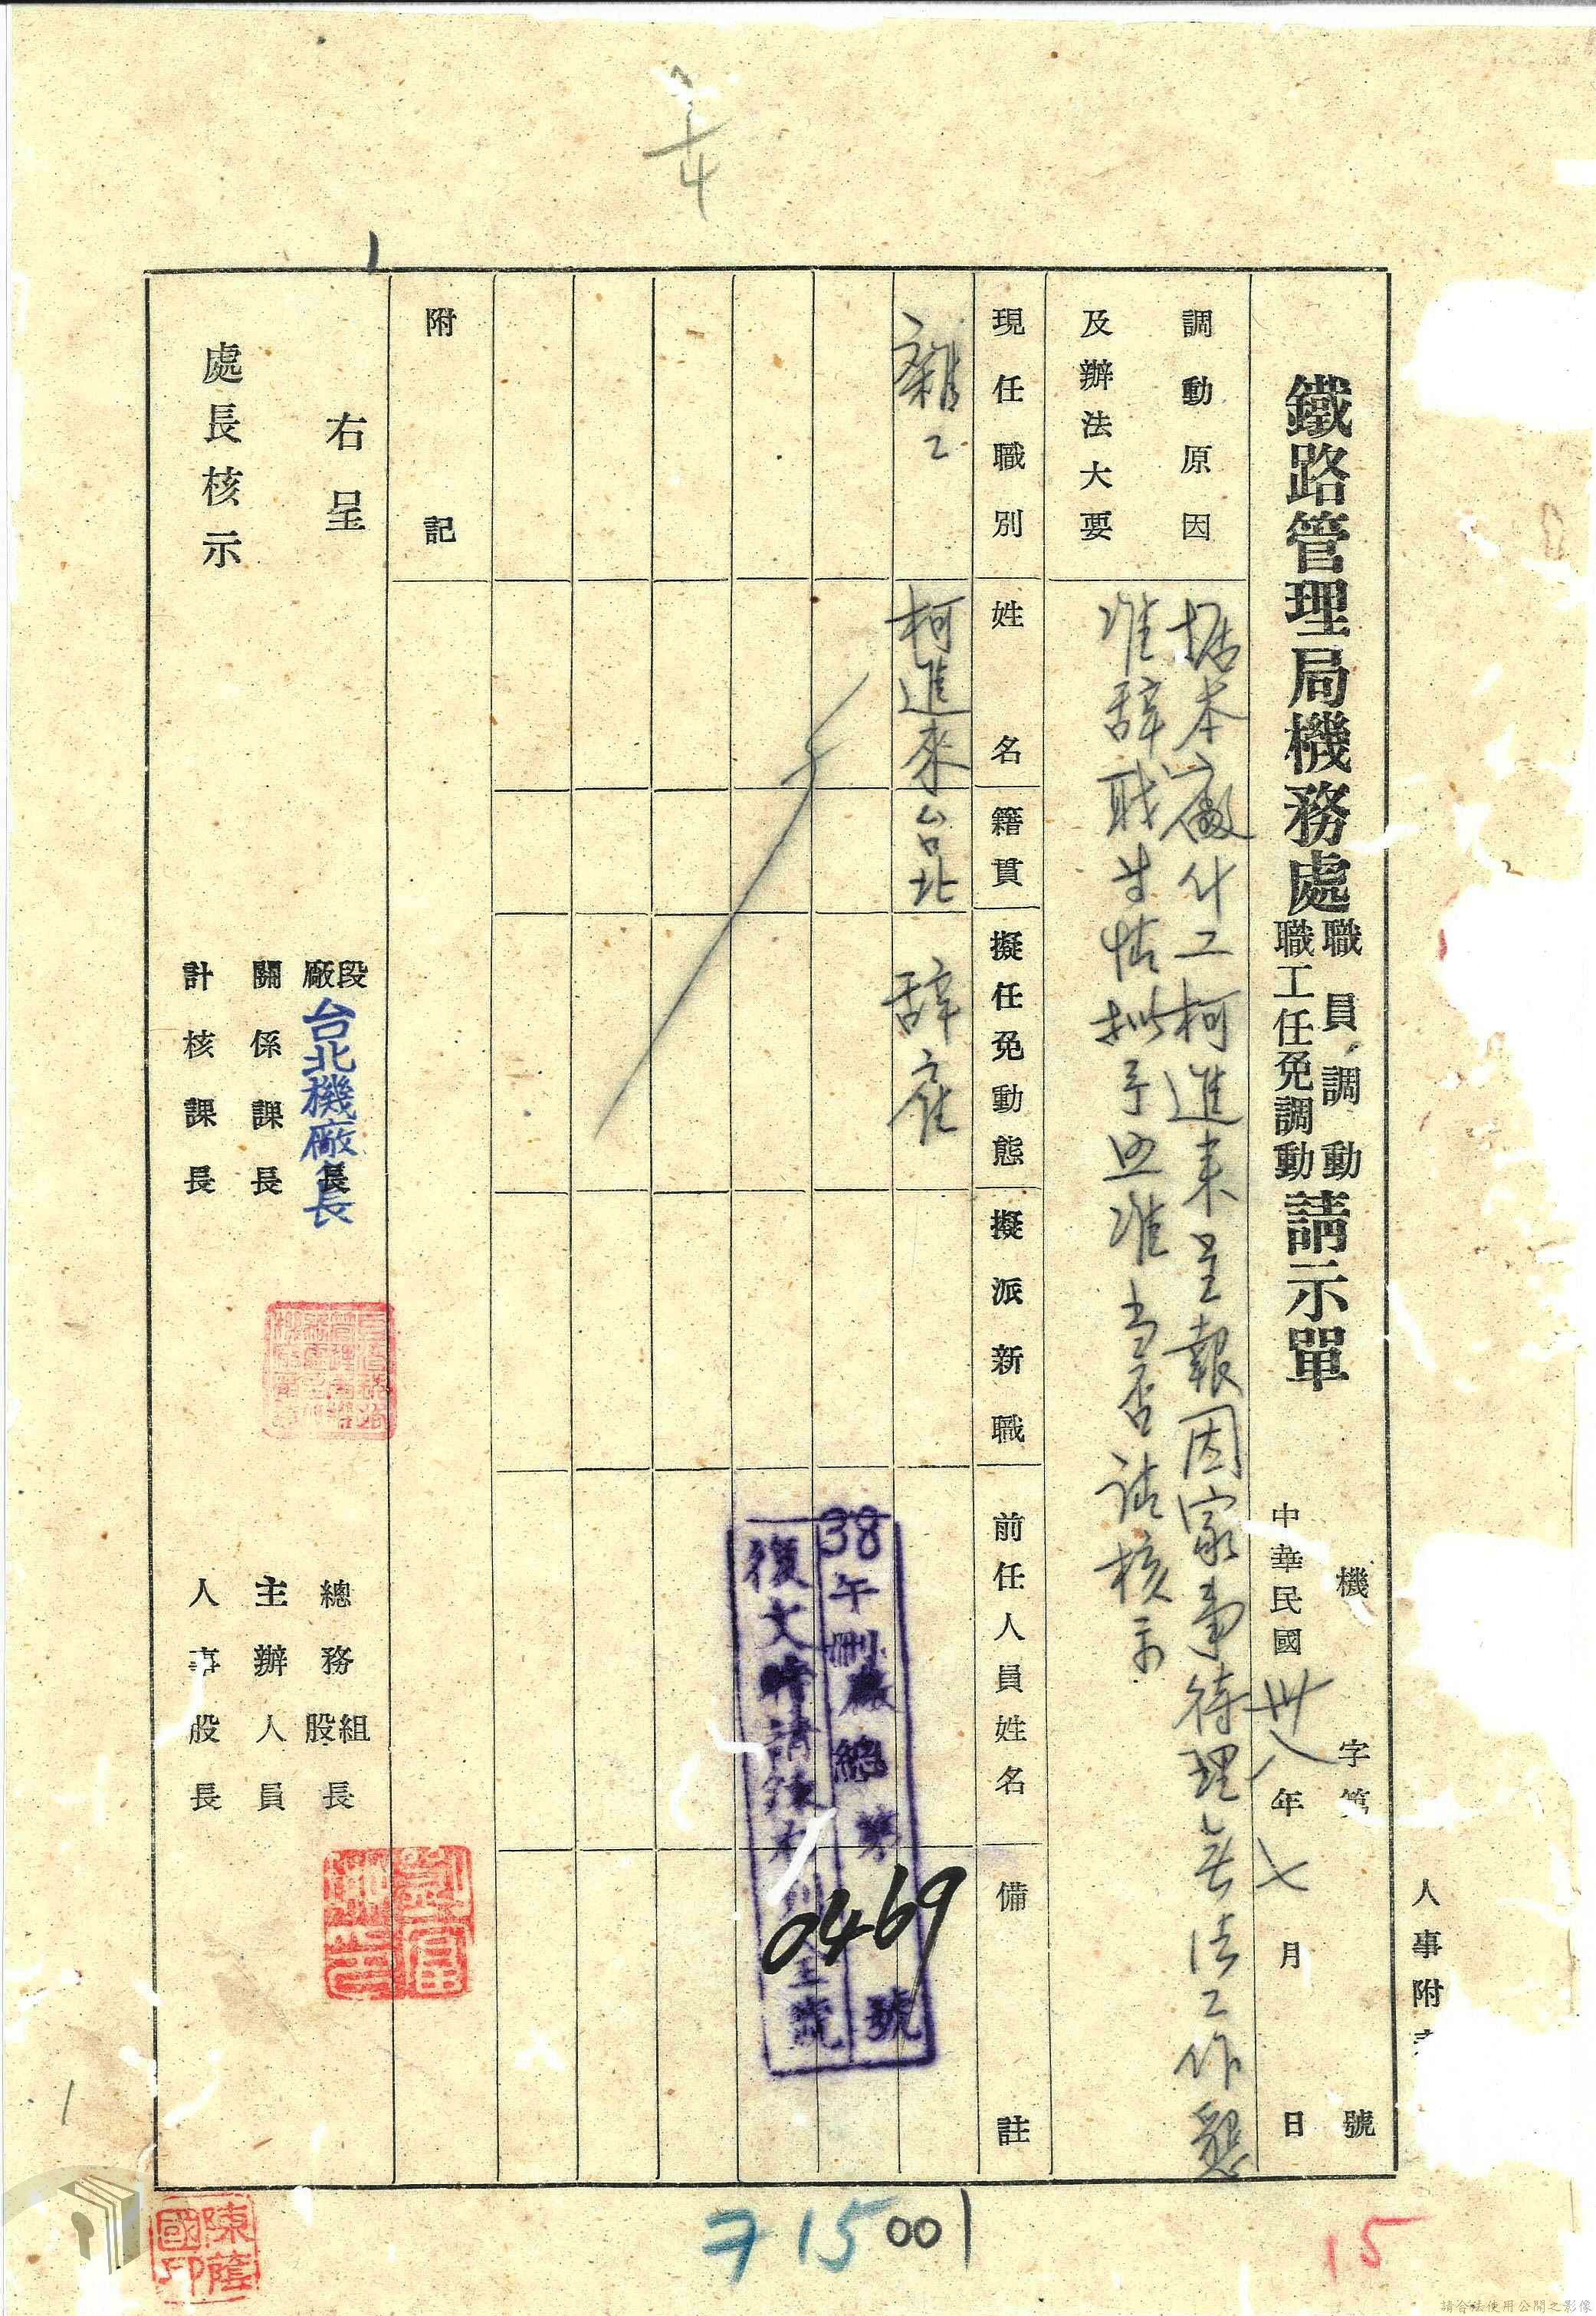 人事附
機 字第 號
鐵路管理局機務處職員調動職工任免調動請示單
中華民國卅八年七月 日
調動原因及辦法大要
據本廠什工柯進來呈報因家事待理無法工作懇
准辞職等情拟予照准当否請核示
現任職別 姓名 籍貫 擬任免動態 擬派新職 前任人員姓名 備註
雜工 柯進來 台北 辞雇
38午刪廠總第0469號
復文時請錄本
附記
右呈
處長核示
段廠長 台北機廠長
關係課長
計核課長
總務組股長
主辦人員
人事股長
陳蔭國印
715
001
15
請合法使用公開之影像